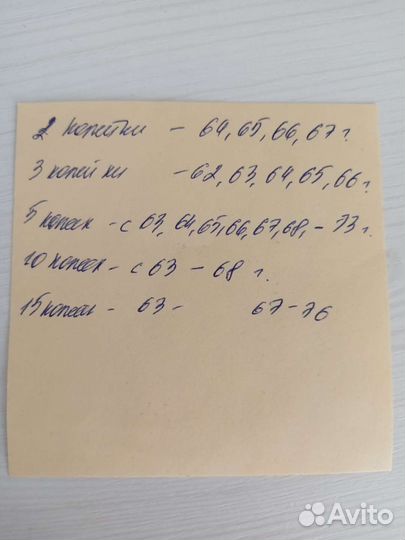 2 копейки – 64, 65, 66, 67 г.
3 копейки – 62, 63, 64, 65, 66 г.
5 копеек – с 63, 64, 65, 66, 67, 68, – 73 г.
10 копеек – с 63 – 68 г.
15 копеек – 63 – 67 – 76
Avito